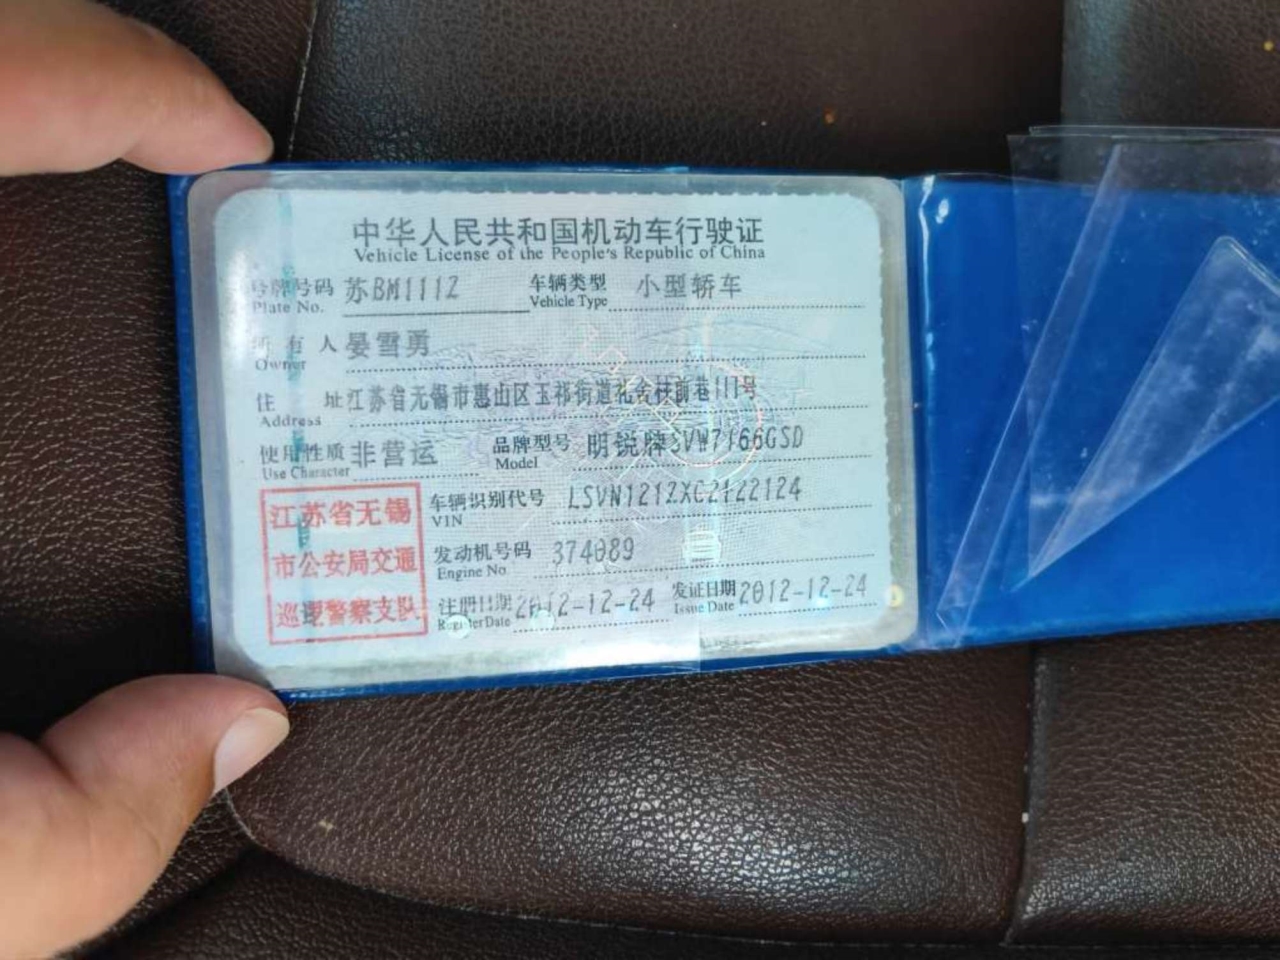 中华人民共和国机动车行驶证
Vehicle License of the People's Republic of China
号牌号码 苏BM111Z 车辆类型 小型轿车
Plate No. Vehicle Type
所有人 晏雪勇
Owner
住址 江苏省无锡市惠山区玉祁街道礼舍村前巷111号
Address
使用性质 非营运 品牌型号 明锐牌SVW7166GSD
Use Character Model
江苏省无锡
市公安局交通
巡逻警察支队
车辆识别代号 LSVN121ZXC2122124
VIN
发动机号码 374089
Engine No.
注册日期 2012-12-24 发证日期 2012-12-24
Register Date Issue Date